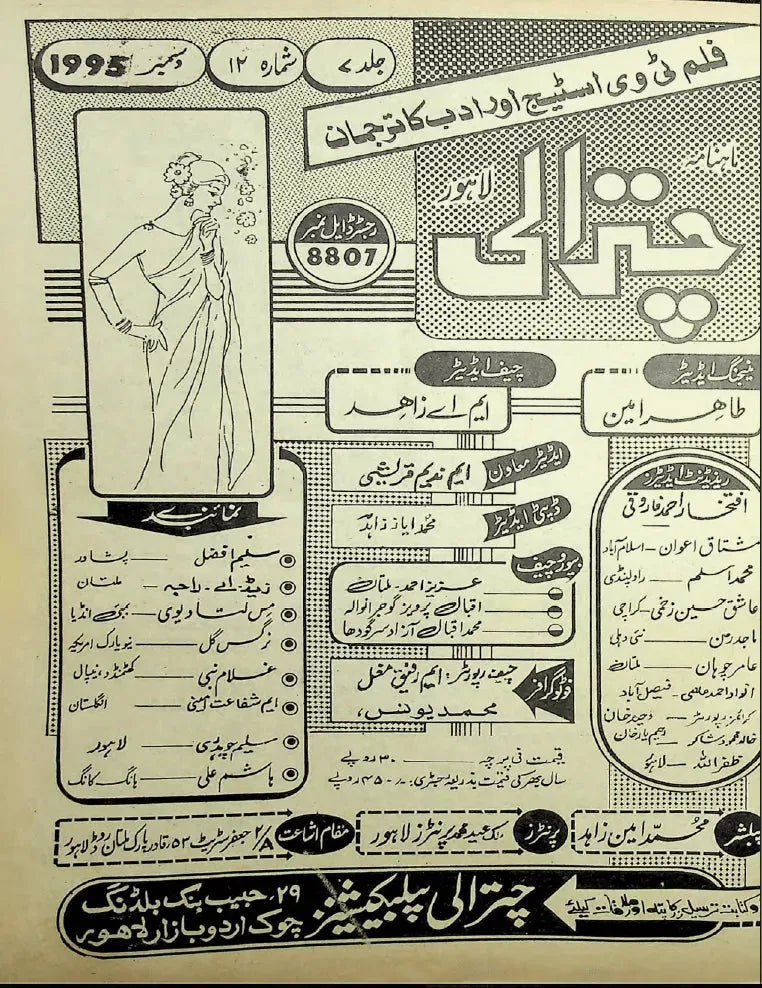 جلد ۷
شمارہ ۱۲
دسمبر 1995
فلم ٹی وی اسٹیج اور ادب کا ترجمان
ماہنامہ
چترالی
لاہور
رجسٹرڈ ایل نمبر
8807
منیجنگ ایڈیٹر
طاہر امین
چیف ایڈیٹر
ایم اے زاہد
ایڈیٹر معاون
ایم ندیم قریشی
ڈپٹی ایڈیٹر
محمد ایاز زاہد
بیورو چیف
عزیز احمد - ملتان
اقبال پرویز گوجرانوالہ
محمد اقبال آزاد سرگودھا
فوٹو گرافر
چیف رپورٹر: ایم رفیق مغل
محمد یونس،
ریذیڈنٹ ایڈیٹرز
افتخار احمد فاروقی
مشتاق اعوان - اسلام آباد
محمد اسلم — راولپنڈی
عاشق حسین زخمی - کراچی
ماجد رمن — نئی دہلی
عامر چوہان — ملتان
انوار احمد - فیصل آباد
کرائمز رپورٹر - رحیم یار خان
خالد محمود شاکر - رحیم یار خان
ظفر اللہ - لاہور
نمائندے
سلیم افضل — پشاور
زیڈ - اے - راجہ — ملتان
مس لتا دیوی — بمبئی انڈیا
نرگس گل — نیویارک امریکہ
غلام نبی — کھٹمنڈو، نیپال
ایم شفاعت — انگلستان
سلیم چوہدری — لاہور
ہاشم علی — ہانگ کانگ
قیمت فی پرچہ — ۳۰ روپے
سال بھر کی قیمت بذریعہ رجسٹری: ۴۵۰ روپے
پبلشر
محمد امین زاہد
پرنٹرز
ملک عید محمد پرنٹرز لاہور
مقام اشاعت
۲/A جعفر سٹریٹ ۵۲، قادر پارک ملتان روڈ لاہور
وکتابت ترسیل زر کا پتہ اور ملاقات کیلئے
چترالی پبلیکیشنز
۲۹، حبیب بنک بلڈنگ
چوک اردو بازار لاھور